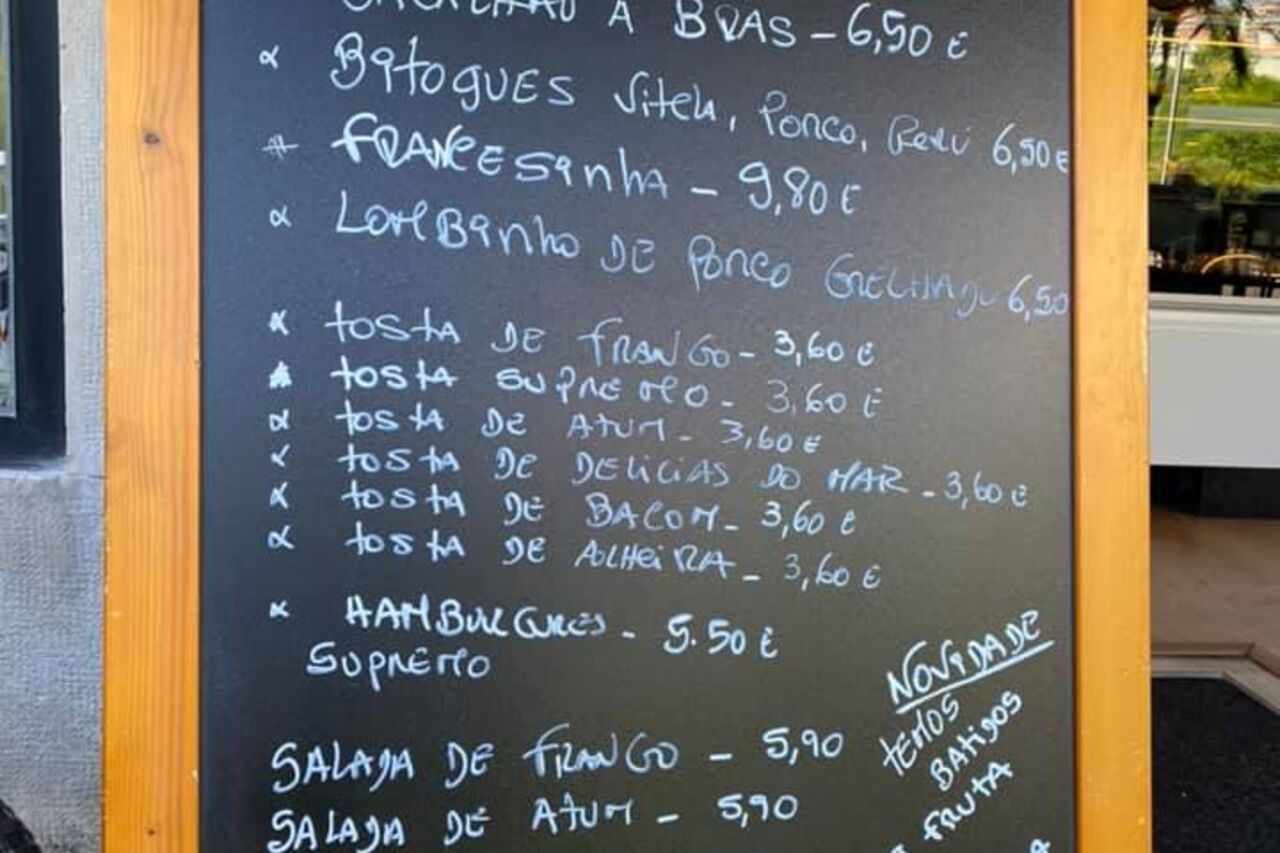 À BRAS - 6,50 €
Bitogues Vitela, Porco, Peru 6,50€
FRANCESINHA - 9,80 €
LOMBINHO DE PORCO GRELHADO 6,50
TOSTA DE FRANGO - 3,60 €
TOSTA SUPREMO - 3,60 €
TOSTA DE ATUM - 3,60 €
TOSTA DE DELICIAS DO MAR - 3,60 €
TOSTA DE BACOM - 3,60 €
TOSTA DE ALHEIRA - 3,60 €
HAMBURGURES - 5.50 €
SUPREMO
SALADA DE FRANGO - 5,90
SALADA DE ATUM - 5,90
NOVIDADE
TEMOS
BATIDOS
FRUTA